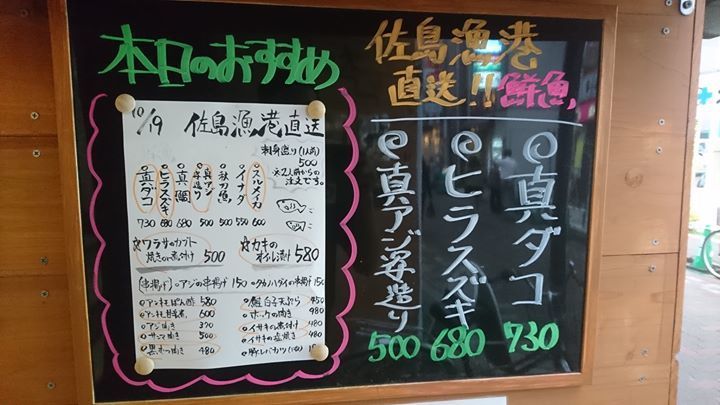 本日のおすすめ
10/19 佐島漁港直送
刺身造り(1人前)
500
※2人前からの
注文です。
スルメイカ 600
イナダ 550
秋刀魚 500
真アジ姿造り 500
真鯛 680
ヒラスズキ 680
真ダコ 730
☆ワラサのカブト
焼きor煮付け 500
☆カキの
オイル漬け 580
(串揚げ)
アジの串揚げ 150
アン肝ぽん酢 580
アン肝甘辛煮 600
アジ焼き 370
サンマ焼き 500
480
白子天ぷら 450
ホッケの焼き 980
イサキの煮付け 480
イサキの塩焼き 480
佐島漁港
直送!!鮮魚
真ダコ 730
ヒラスズキ 680
真アジ姿造り 500